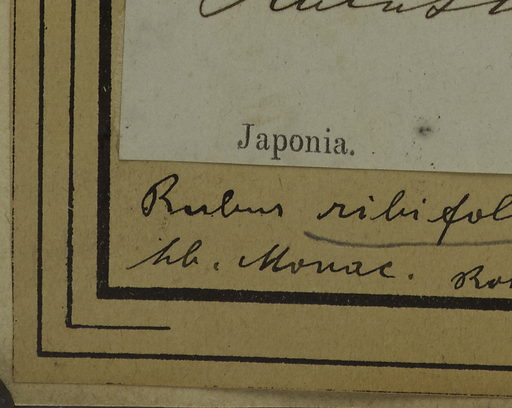 Japonia.
Rubus ribifol
hb. Monac.